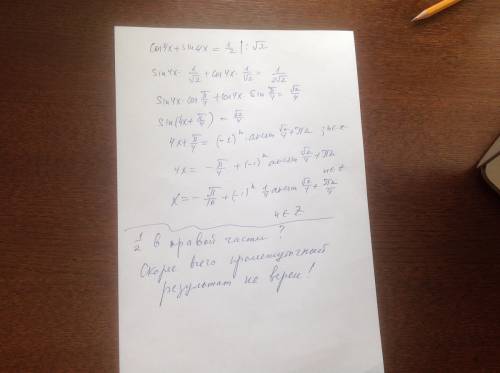 cos4x + sin4x = 1/2 | : √2
sin4x · 1/√2 + cos4x · 1/√2 = 1/2√2
sin4x · cos π/4 + cos4x · sin π/4 = √2/4
sin(4x + π/4) = √2/4
4x + π/4 = (-1)ⁿ arcsin √2/4 + πn; n∈z
4x = - π/4 + (-1)ⁿ arcsin √2/4 + πn
n∈Z
x = - π/16 + (-1)ⁿ 1/4 arcsin √2/4 + πn/4
n∈Z
1/2 в правой части?
Скоре всего промежуточный
результат не верен!